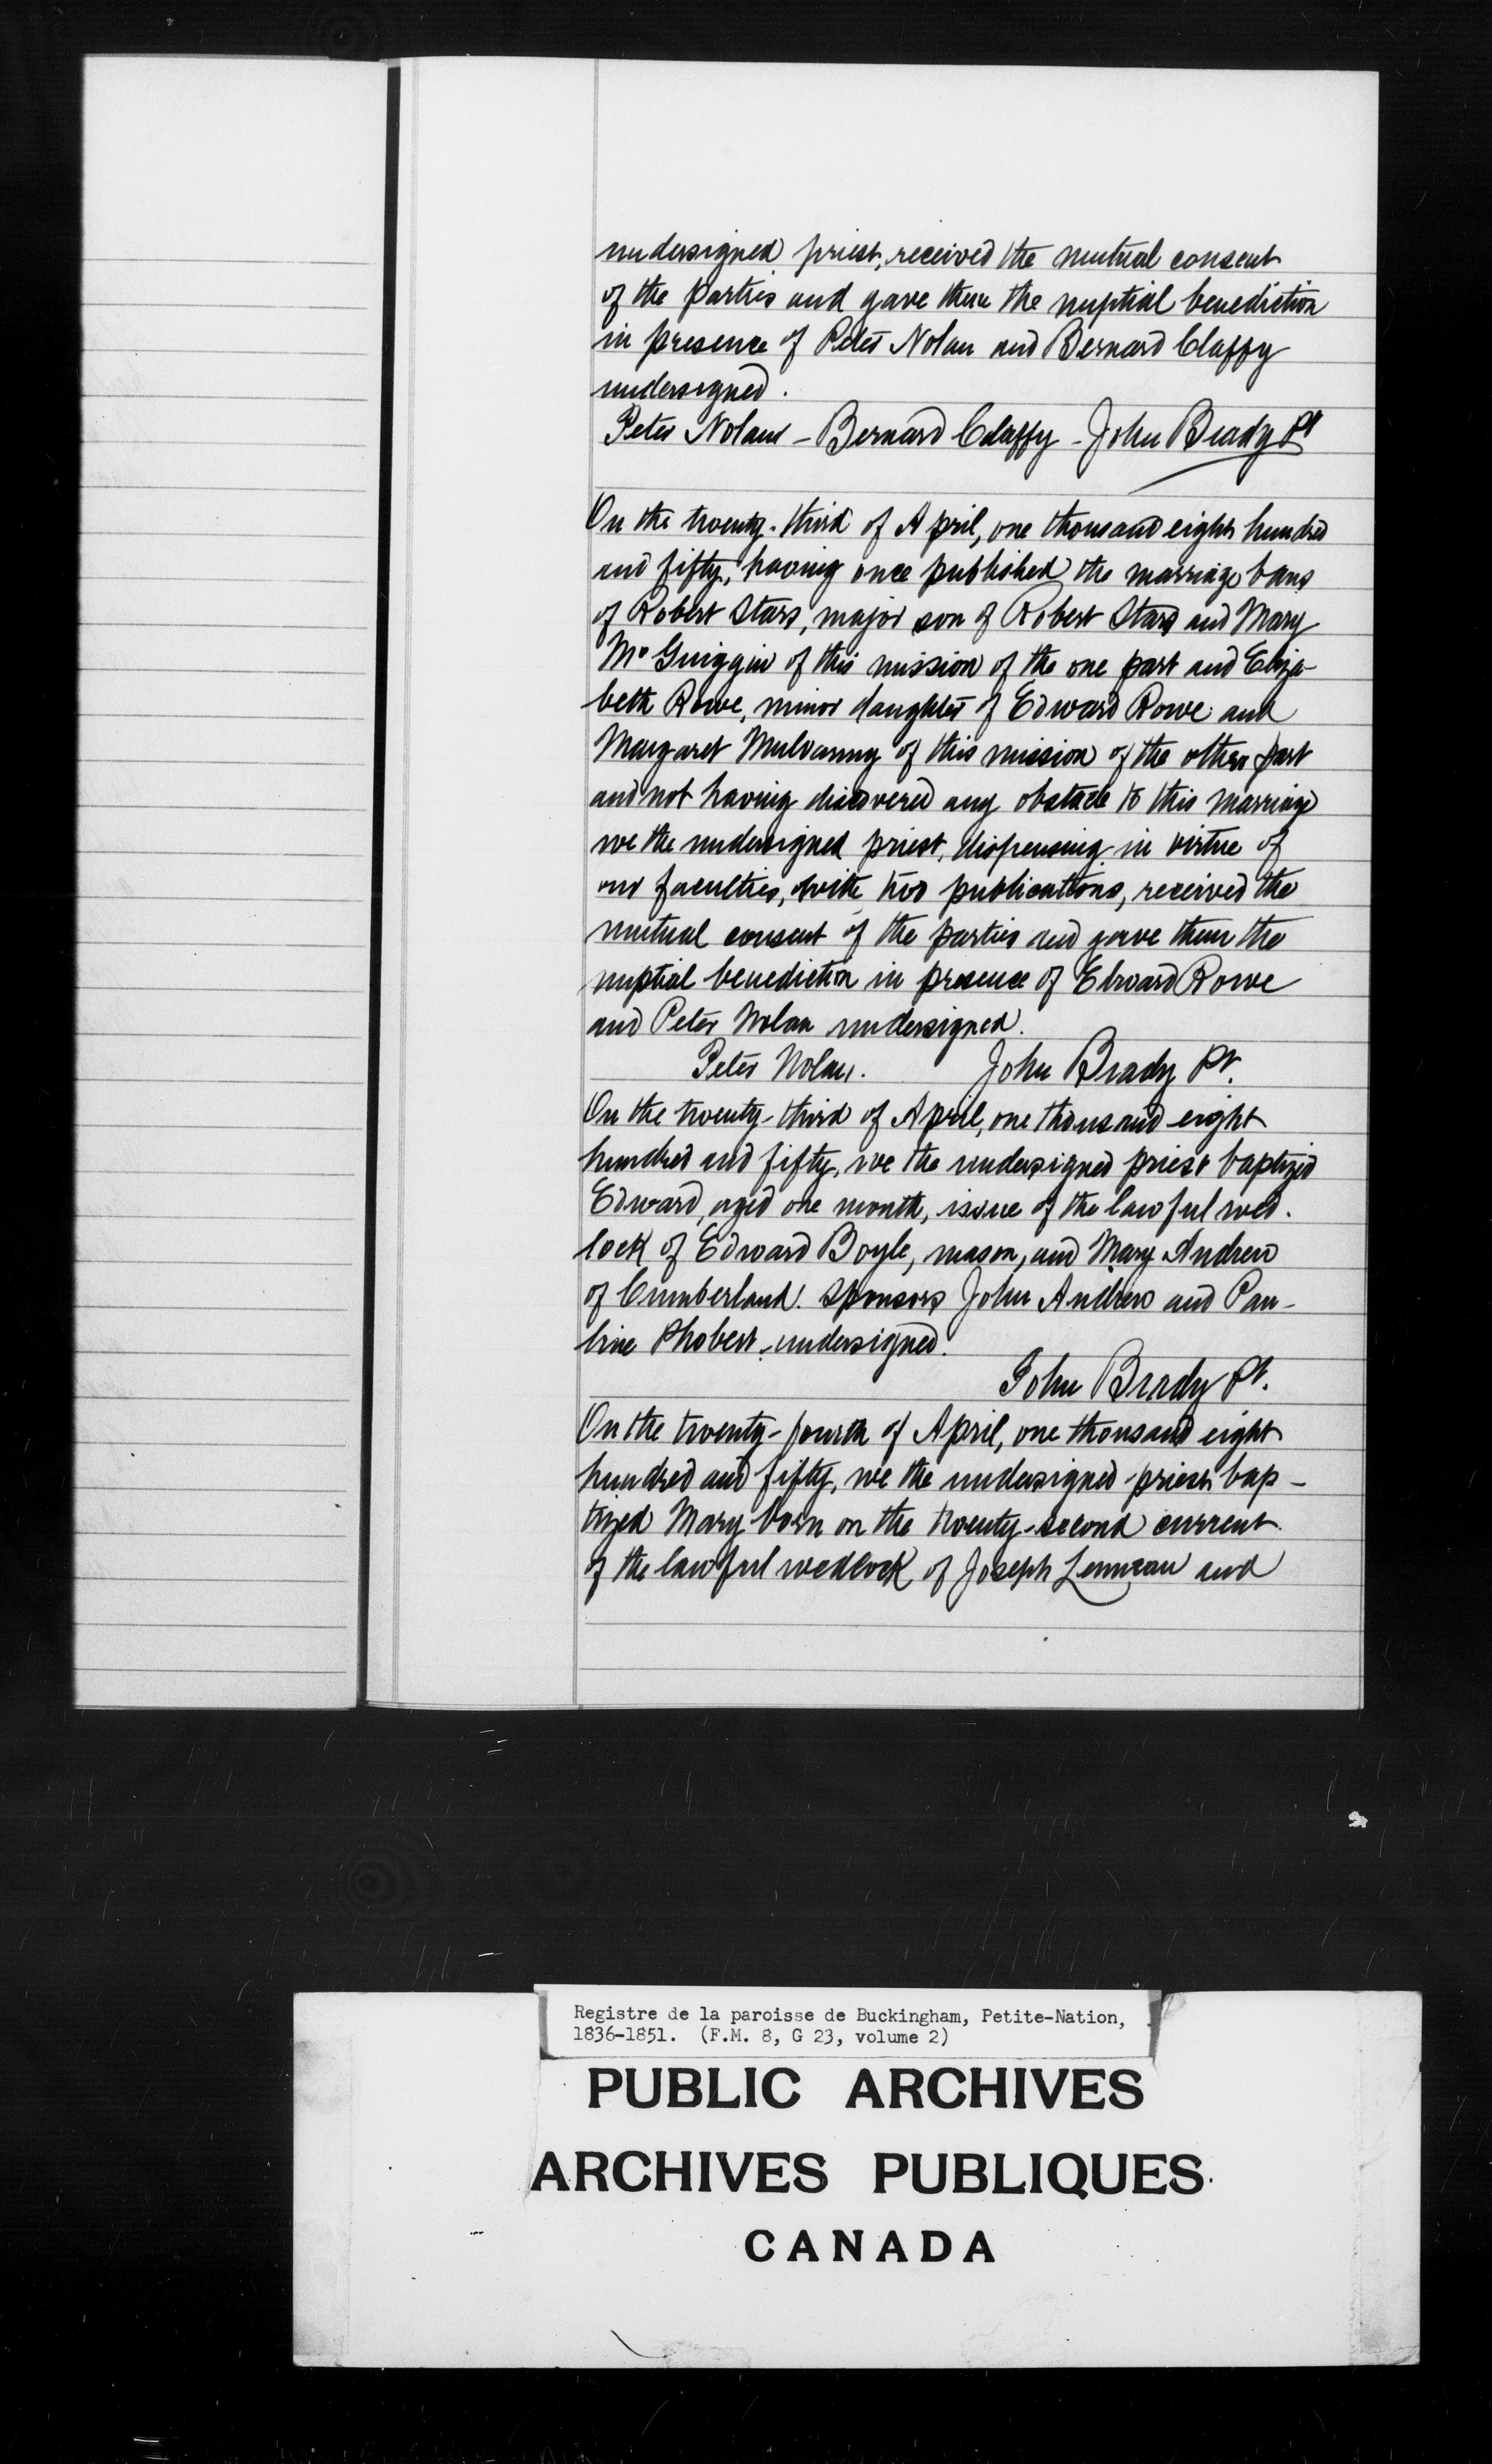 undersigned priest, received the mutual consent
of the parties and gave them the nuptial benediction
in presence of Peter Nolan and Bernard Claffy
undersigned.
Peter Nolan - Bernard Claffy - John Brady Pt
On the twenty-third of April, one thousand eight hundred
and fifty, having once published the marriage bans
of Robert Stars, major son of Robert Stars and Mary
Mc Guiggin of this mission of the one part and Eliza-
beth Rowe, minor daughter of Edward Rowe and
Margaret Mulvanny of this mission of the other part
and not having discovered any obstacle to this marriage
we the undersigned priest, dispensing in virtue of
our faculties, with two publications, received the
mutual consent of the parties and gave them the
nuptial benediction in presence of Edward Rowe
and Peter Nolan undersigned.
Peter Nolan. John Brady Pt.
On the twenty-third of April, one thousand eight
hundred and fifty, we the undersigned priest baptized
Edward, aged one month, issue of the lawful wed-
lock of Edward Boyle, mason, and Mary Andrew
of Cumberland. Sponsors John Andrew and Pau-
line Phobert undersigned.
John Brady Pt.
On the twenty-fourth of April, one thousand eight
hundred and fifty, we the undersigned priest bap-
tized Mary born on the twenty-second current
of the lawful wedlock of Joseph and
Registre de la paroisse de Buckingham, Petite-Nation,
1836-1851. (F.M. 8, G 23, volume 2)
PUBLIC ARCHIVES
ARCHIVES PUBLIQUES
CANADA